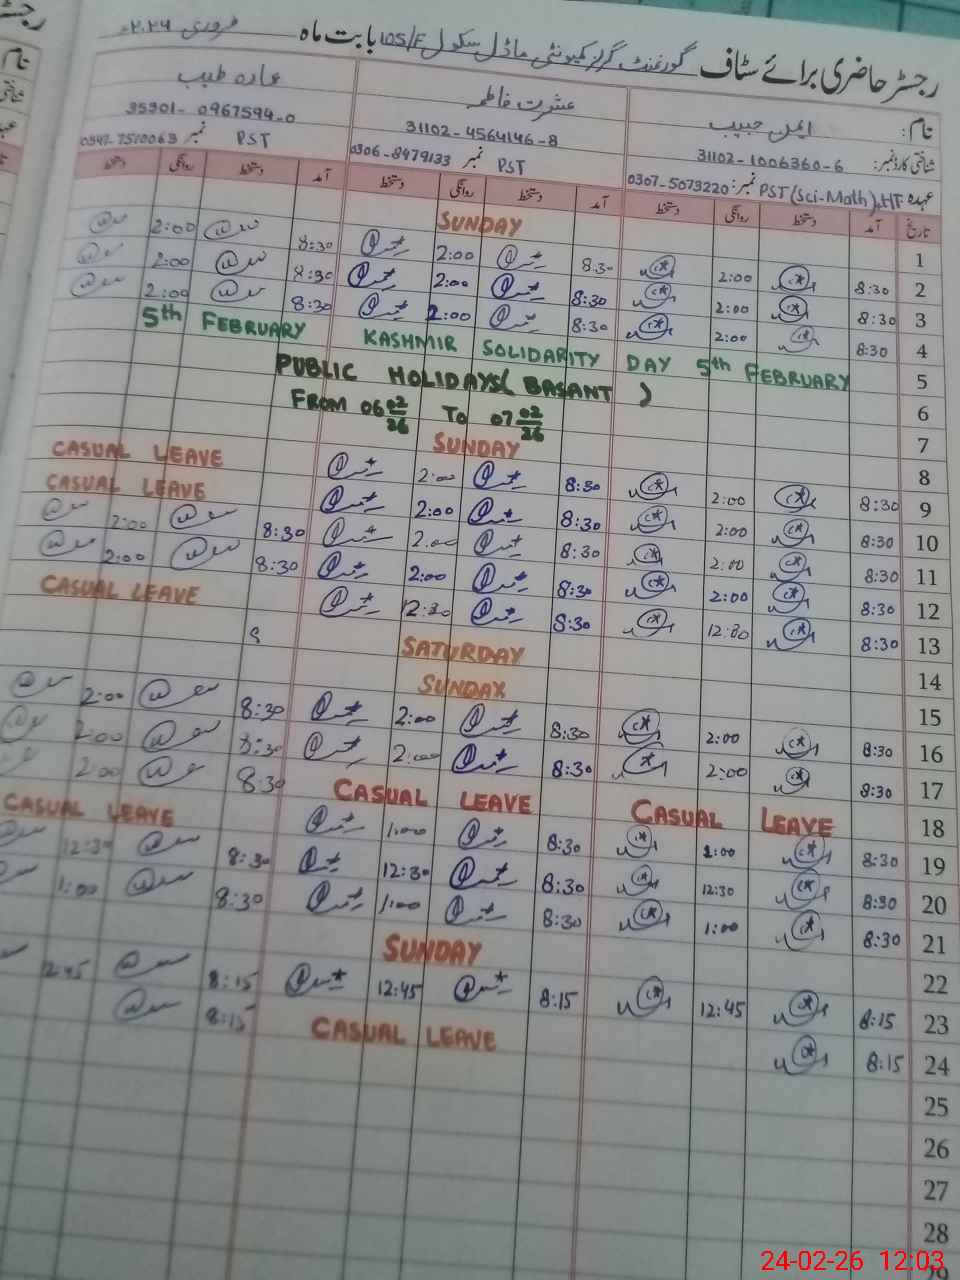 رجسٹر حاضری برائے سٹاف گورنمنٹ گرلز کمیونٹی ماڈل سکول 105/F بابت ماہ فروری
نام: ایمن حبیب عشرت فاطمہ
شناختی کارڈ نمبر: 31102-1006360-6 31102-4564146-8 35301-0967594-0
عہدہ PST (Sci-Math), HT نمبر: 0307-5073220 PST نمبر 0306-8479133 PST نمبر
تاریخ آمد دستخط روانگی دستخط آمد دستخط روانگی دستخط آمد دستخط روانگی دستخط
1 SUNDAY
2 8:30 2:00 8:30 2:00 8:30 2:00
3 8:30 2:00 8:30 2:00 8:30 2:00
4 8:30 2:00 8:30 2:00 8:30 2:00
5 5th FEBRUARY KASHMIR SOLIDARITY DAY 5th FEBRUARY
6 PUBLIC HOLIDAYS (BASANT )
7 FROM 06 02/26 To 07 02/26
8 SUNDAY
9 8:30 2:00 8:30 2:00 CASUAL LEAVE
10 8:30 2:00 8:30 2:00 CASUAL LEAVE
11 8:30 2:00 8:30 2:00 8:30 2:00
12 8:30 2:00 8:30 2:00 8:30 2:00
13 8:30 12:30 8:30 12:30 CASUAL LEAVE
14 SATURDAY
15 SUNDAY
16 8:30 2:00 8:30 2:00 8:30 2:00
17 8:30 2:00 8:30 2:00 8:30 2:00
18 CASUAL LEAVE CASUAL LEAVE 8:30 2:00
19 8:30 8:30 1:00 CASUAL LEAVE
20 8:30 12:30 8:30 12:30 8:30 12:30
21 8:30 1:00 8:30 1:00 8:30 1:00
22 SUNDAY
23 8:15 12:45 8:15 12:45 8:15
24 8:15 CASUAL LEAVE 8:15
25
26
27
28
29
24-02-26 12:03